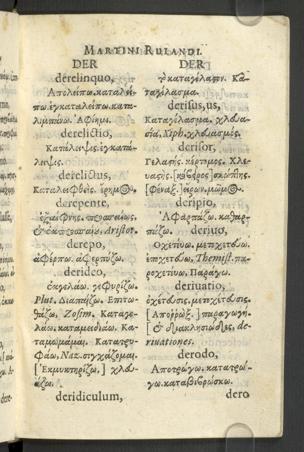 MARTINI RULANDI.
DER
derelinquo,
Ἀπολείπω, καταλεί-
πω, ἐγκαταλείπω, κατα-
λιμπάνω. Ἀφίημι.
derelictio,
Κατάλειψις, ἐγκατά-
λειψις.
derelictus,
Καταλειφθεὶς,
derepente,
ἐξαίφνης, Aristor.
derepo,
ἀφέρπω, ἀφερπύζω.
derideo,
ἐκγελάω, γεφυρίζω.
Plut. Διαπαίζω, Ἐπιτω-
θάζω, Zosim. Καταγε-
λάω, καταμειδιάω. Κα-
ταμωκάομαι. Κατατρυ-
φάω, Naz.
[Ἐκμυκτηρίζω,] χλευ-
άζω.
deridiculum,
DER
καταγέλαστον. Κα-
ταγέλασμα.
derisus,us,
Καταγέλασμα, χλευα-
σία, Xiph. χλευασμός.
derisor,
Γελαστὴς, κέρτομος, Χλε-
υαστὴς,
[φέναξ,]
deripio,
Ἀφαρπάζω, καθαρ-
πάζω.
deriuo,
Ὀχετεύω, μετοχετεύω,
ἐποχετεύω, Themist. πα-
ροχετεύω, Παράγω.
deriuatio,
ὀχέτευσις, μετοχέτευσις.
παραγωγὴ.
de-
riuationes.
derodo,
Ἀποτρώγω, κατατρώ-
γω, καταβιβρώσκω.
dero